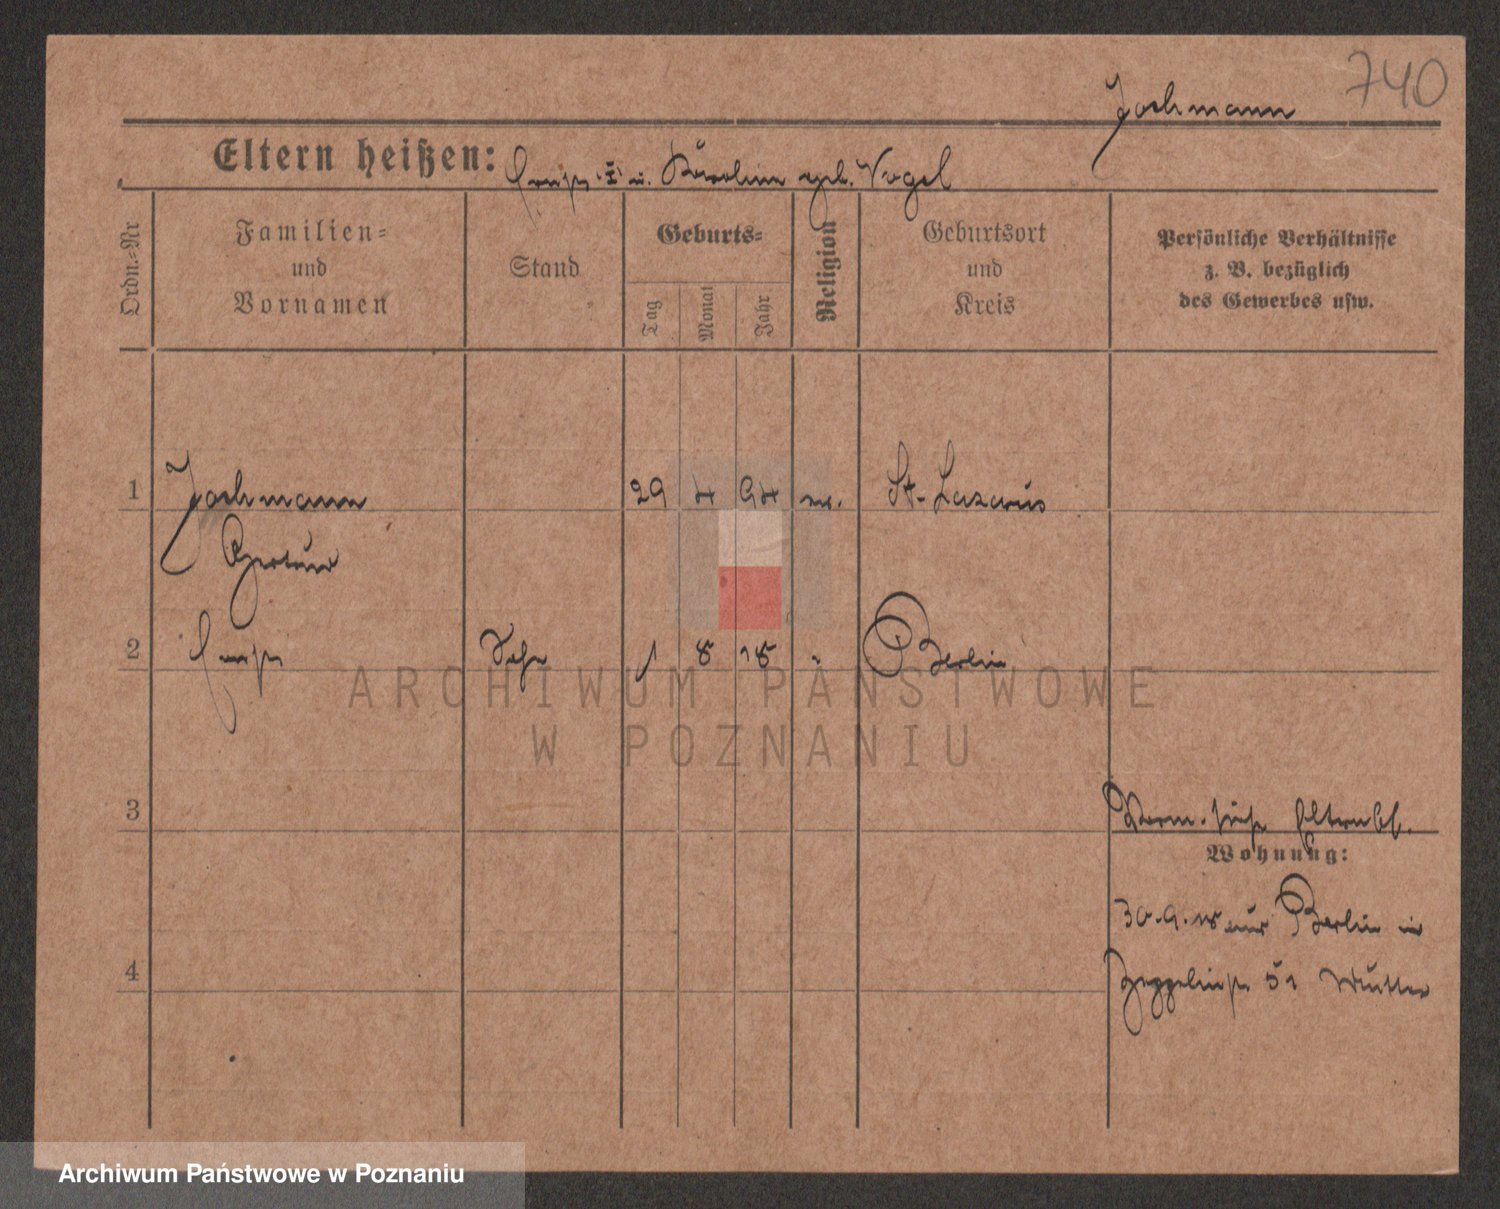 740
Jochmann
Eltern heißen: Ernst I u. Karoline geb. Vogel
Ordn.-Nr
Familien-
und
Vornamen
Stand
Geburts-
Tag
Monat
Jahr
Religion
Geburtsort
und
Kreis
Persönliche Verhältnisse
z. B. bezüglich
des Gewerbes usw.
1 Jochmann 29 4 94 ev. St. Lazarus
2 Ernst 1 8 18 " Berlin
3
Elternbl.
Wohnung:
30.9.18 aus Berlin in
Zeppelinstr 51 Mutter
4
ARCHIWUM PAŃSTWOWE
W POZNANIU
Archiwum Państwowe w Poznaniu